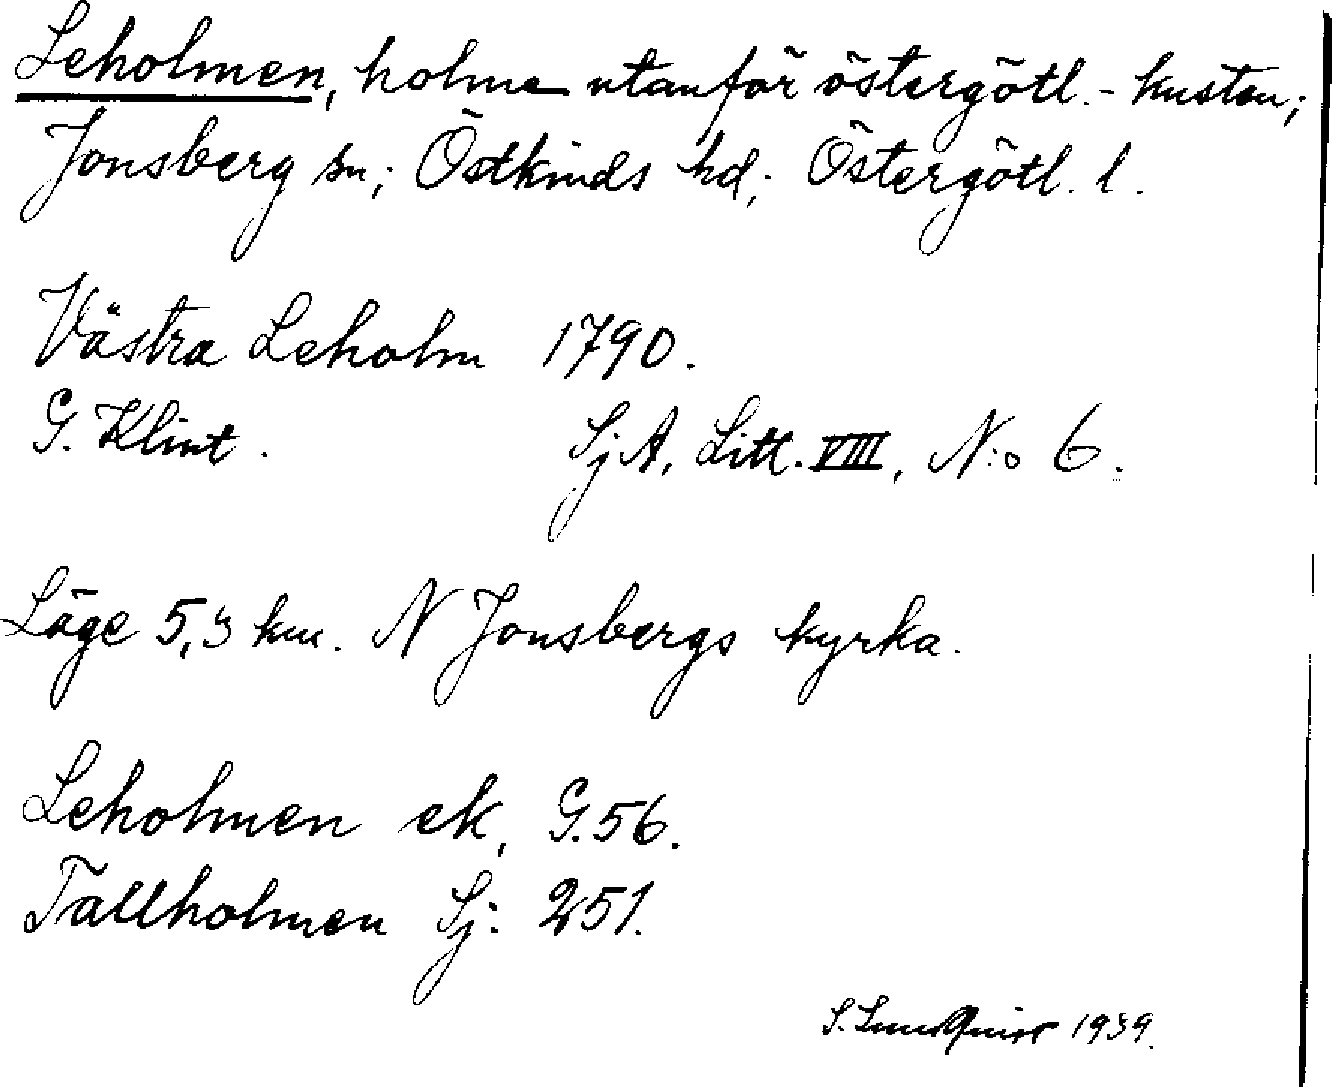 Leholmen, holme utanför östergötl.-kusten;
Jonsberg sn; Östkinds hd; Östergötl. l.
Västra Leholm 1790.
G. Klint. SjA, Litt. VIII, N:o 6.
Läge 5,3 km. N Jonsbergs kyrka.
Leholmen ek, G.56.
Tallholmen Sj: 251.
S. Lundquist 1939.